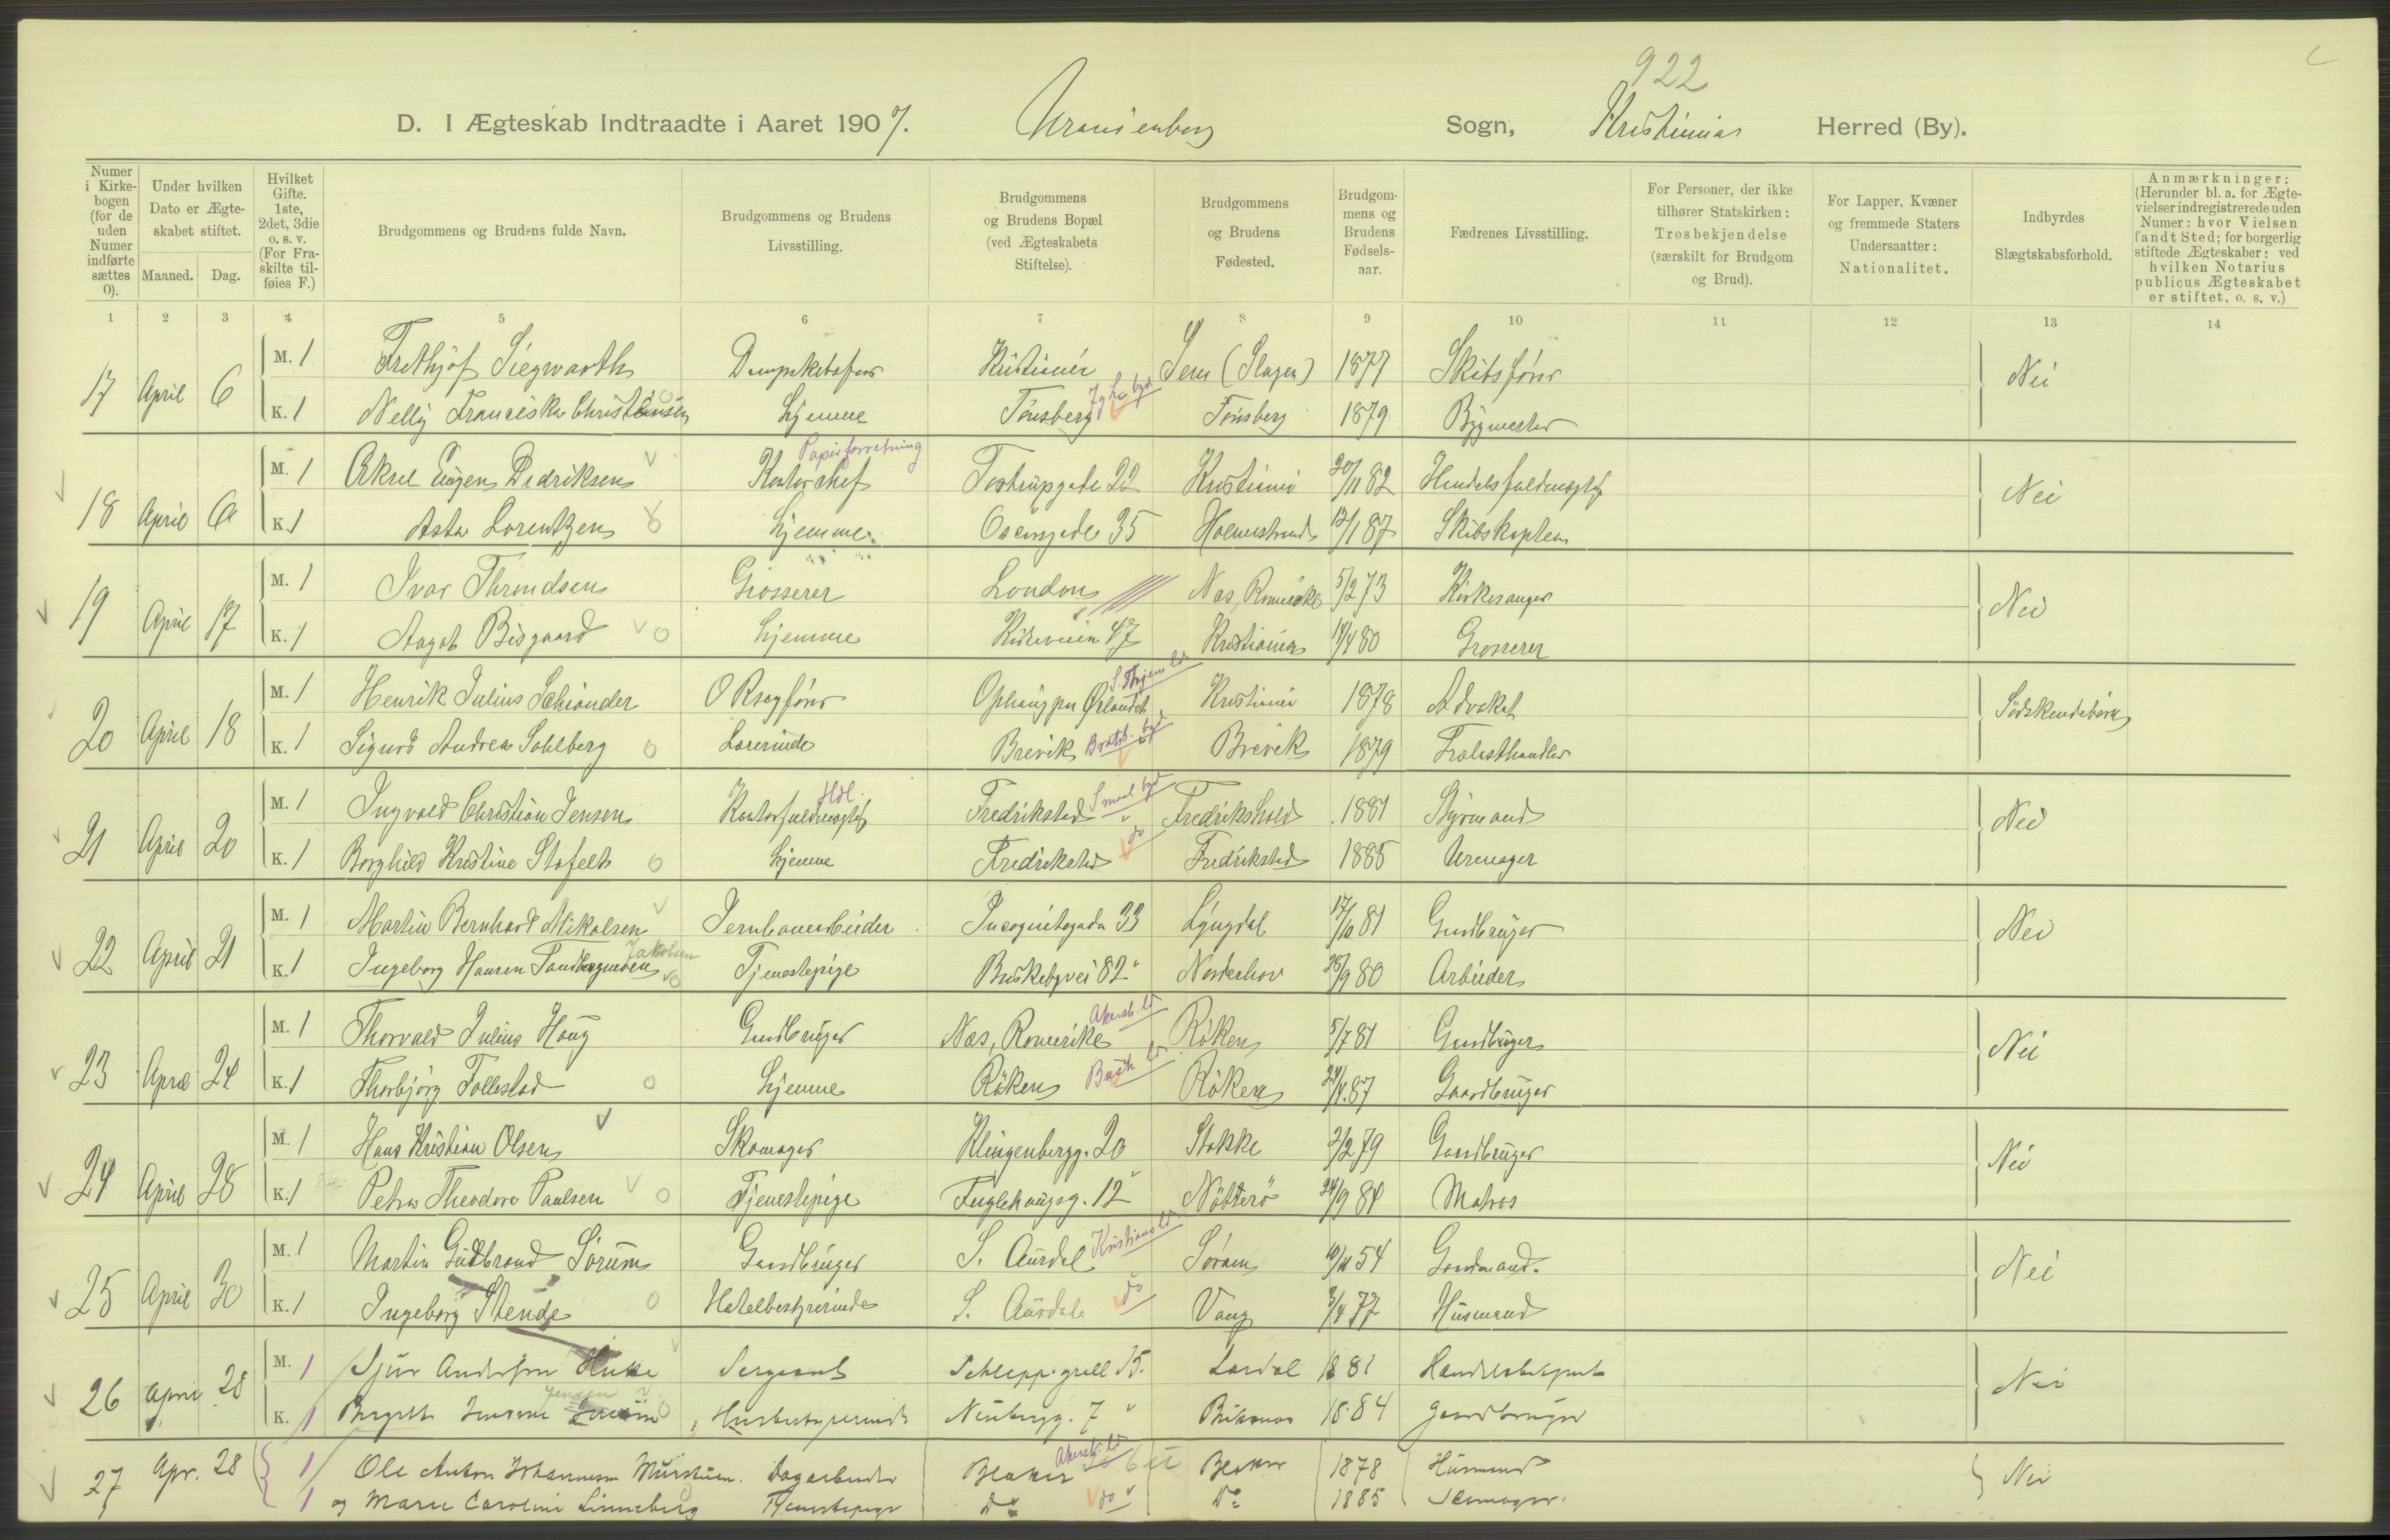 922
D. I Ægteskab Indtraadte i Aaret 1907. Uranienborg Sogn, Kristiania Herred (By).
Numer i Kirkebogen (for de uden Numer indførte sættes 0).
Under hvilken Dato er Ægteskabet stiftet.
Maaned. Dag.
Hvilket Gifte. 1ste, 2det, 3die o. s. v. (For Fraskilte tilføies F.)
Brudgommens og Brudens fulde Navn.
Brudgommens og Brudens Livsstilling.
Brudgommens og Brudens Bopæl (ved Ægteskabets Stiftelse).
Brudgommens og Brudens Fødested.
Brudgommens og Brudens Fødselsaar.
Fædrenes Livsstilling.
For Personer, der ikke tilhører Statskirken: Trosbekjendelse (særskilt for Brudgom og Brud).
For Lapper, Kvæner og fremmede Staters Undersaatter: Nationalitet.
Indbyrdes Slægtskabsforhold.
Anmærkninger: (Herunder bl. a. for Ægtevielser indregistrerede uden Numer: hvor Vielsen fandt Sted; for borgerlig stiftede Ægteskaber: ved hvilken Notarius publicus Ægteskabet er stiftet, o. s. v.)
1 2 3 4 5 6 7 8 9 10 11 12 13 14
17 April 6 M. 1 Frethjof Siegwarth Dampskibsfører Kristiania Sem (Slagen) 1877 Skibsfører Nei
K. 1 Nelly Franciska Christensen hjemme Tønsberg Tønsberg 1879 Bygmester
18 April 6 M. 1 Aksel Eugen Dedriksen Kontorchef Papirforretning Tostrupgade 22 Kristiania 20/11 82 Handelsfuldmægtig Nei
K. 1 Asta Lorentzen hjemme Oscarsgade 35 Holmestrand 12/1 87 Skibskaptein
19 April 17 M. 1 Ivar Throndsen Grosserer London Nes, Romerike 5/2 73 Kirkesanger Nei
K. 1 Aagot Bisgaard hjemme Kirkeveien 47 Kristiania 4 80 Grosserer
20 April 18 M. 1 Henrik Julius Schiander O Rsagfører Ophaug pr Ørlandet Kristiania 1878 Advokat Sødskendebørn
K. 1 Sigurd Andrea Sahlberg Lærerinde Brevik Bratsb. Brevik 1879 Trælasthandler
21 April 20 M. 1 Ingvald Christian Jensen Kontorfuldmægtig Hdl. Fredrikstad Smaal. Fredrikshald 1881 Styrmand Nei
K. 1 Borghild Kristine Stafelt hjemme Fredrikstad do Fredrikstad 1885 Urmager
22 April 21 M. 1 Martin Bernhard Mikalsen Jernbanearbeider Incognitogada 33 Lyngdal 17/10 81 Gaardbruger Nei
K. 1 Ingeborg Hansen Jakobsen Tjenestepige Briskebyvei 82 Norderhov 25/9 80 Arbeider
23 April 24 M. 1 Thorvald Julius Haug Gaardbruger Nes, Romerike Akersh. Røken 5/7 81 Gaardbruger Nei
K. 1 Thorbjørg Follestad hjemme Røken Busk. Røken 87 Gaardbruger
24 April 28 M. 1 Hans Kristian Olsen Skomager Klingenbergg. 20 Stokke 2/2 79 Gaardbruger Nei
K. 1 Petra Theodora Paulsen Tjenestepige Fuglehaugsg. 12 Nøtterø 24/9 84 Matros
25 April 30 M. 1 Martin Gudbrand Sørum Gaardbruger S. Aurdal Kristians Sørum 54 Gaardmand. Nei
K. 1 Ingeborg Stende Hotelbestyrerinde S. Aurdal do Vang 3/4 77 Husmand
26 April 28 M. 1 Sjur Andersen Sergeant Schleppegrell 15. Lærdal 1881 Nei
K. 1 Birgitte Jensen Husbestyrerinde Neuberg. 7 1884 Gaardbruger
27 Apr. 28 1 Ole Anton Johannesen Murstuen. Dagarbeider Blaker Akersh. Blaker 1878 Husmand Nei
1 og Marie Caroline Linneberg Tjenestepige Do do Do 1885 Skomager.